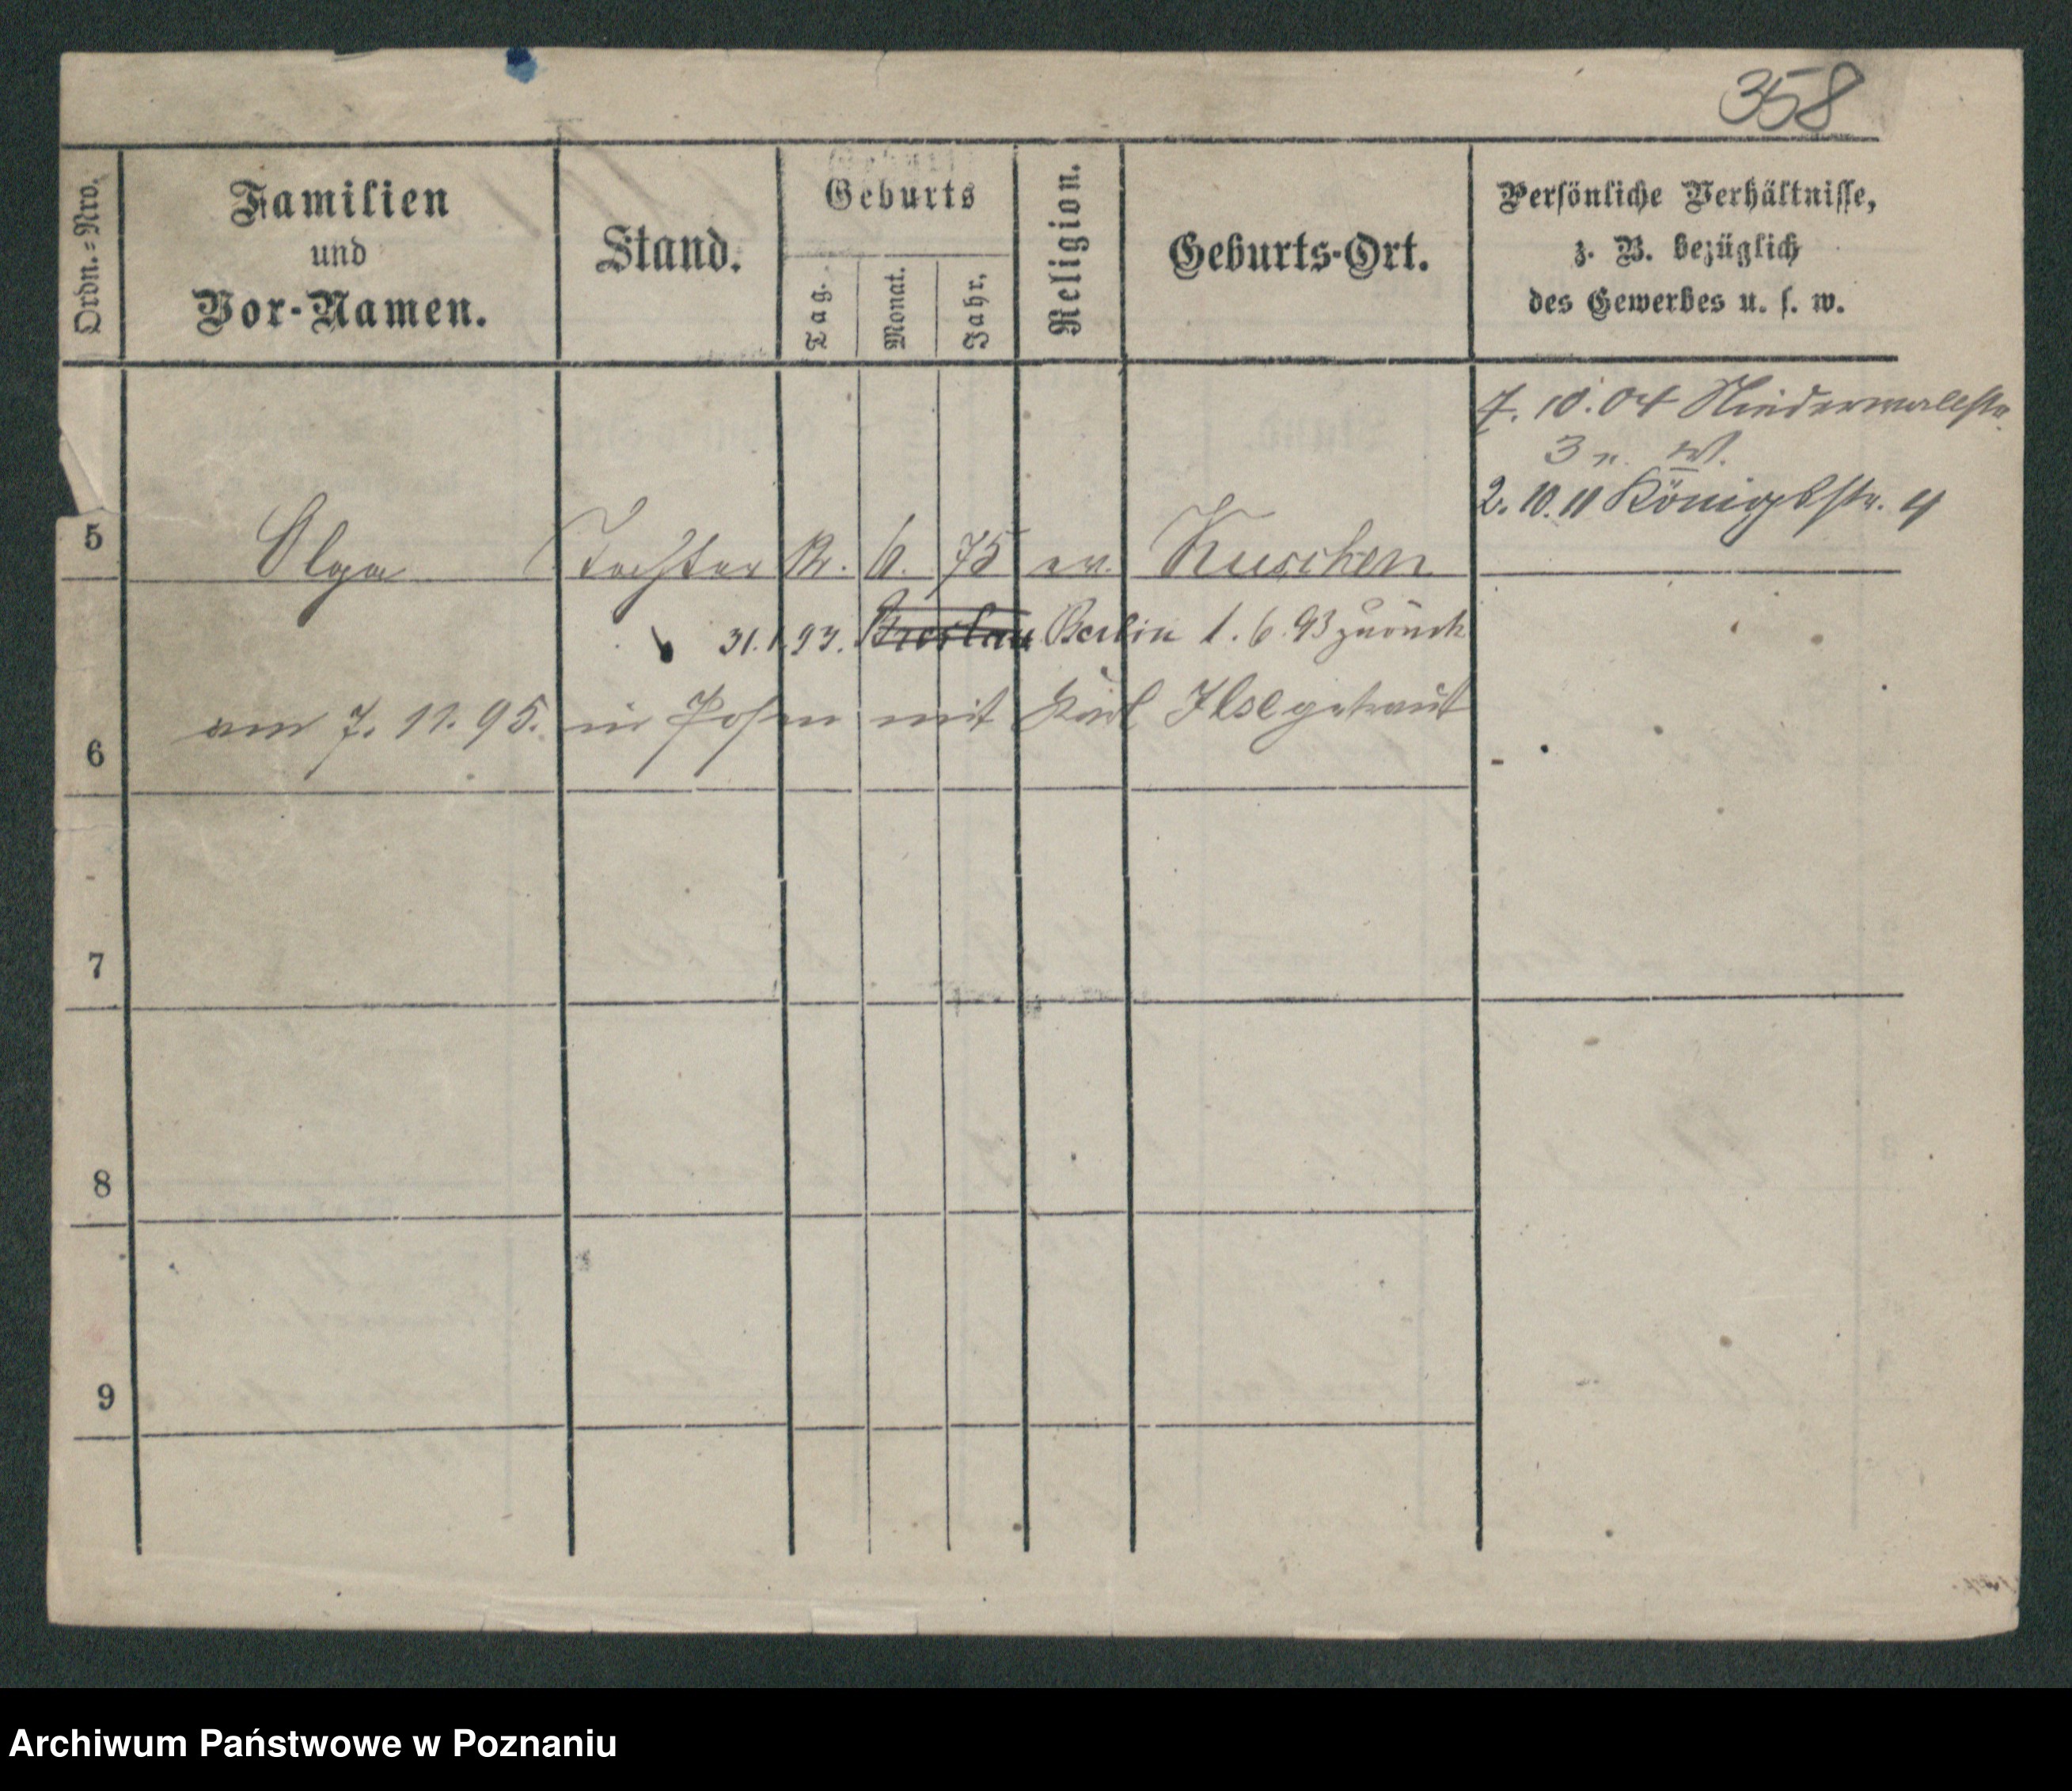 358
Ordn.=Nro.
Familien
und
Vor-Namen.
Stand.
Geburts
Tag.
Monat.
Jahr.
Religion.
Geburts-Ort.
Persönliche Verhältnisse,
z. B. bezüglich
des Gewerbes u. s. w.
7. 10. 04 Niederwallstr.
3 n. W.
2. 10. 11 Königsstr. 4
5 Olga Tochter 12. 6. 75 ev. Kuschen
31. 1. 93. Breslau Berlin 1. 6. 93 zurück
6 am 7. 11. 95. in Posen mit Karl Ilse getraut
7
8
9
Archiwum Państwowe w Poznaniu